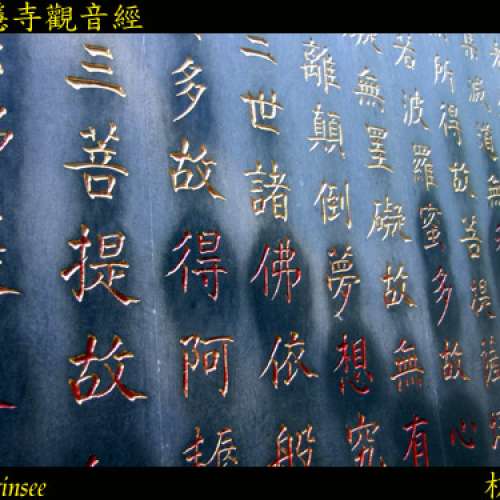 隱寺觀音經
集滅道無
所得故菩提薩埵
若波羅蜜多故心
礙無罣礙故無有
離顛倒夢想究
三世諸佛依般
多故得阿
三菩提故
insee